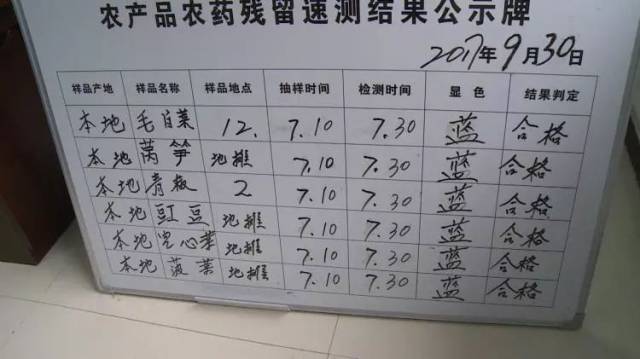 农产品农药残留速测结果公示牌
2017年9月30日
样品产地 样品名称 样品地点 抽样时间 检测时间 显色 结果判定
本地 毛白菜 12. 7.10 7.30 蓝 合格
本地 莴笋 地摊 7.10 7.30 蓝 合格
本地 青椒 2 7.10 7.30 蓝 合格
本地 豇豆 地摊 7.10 7.30 蓝 合格
本地 空心菜 地摊 7.10 7.30 蓝 合格
本地 菠菜 地摊 7.10 7.30 蓝 合格